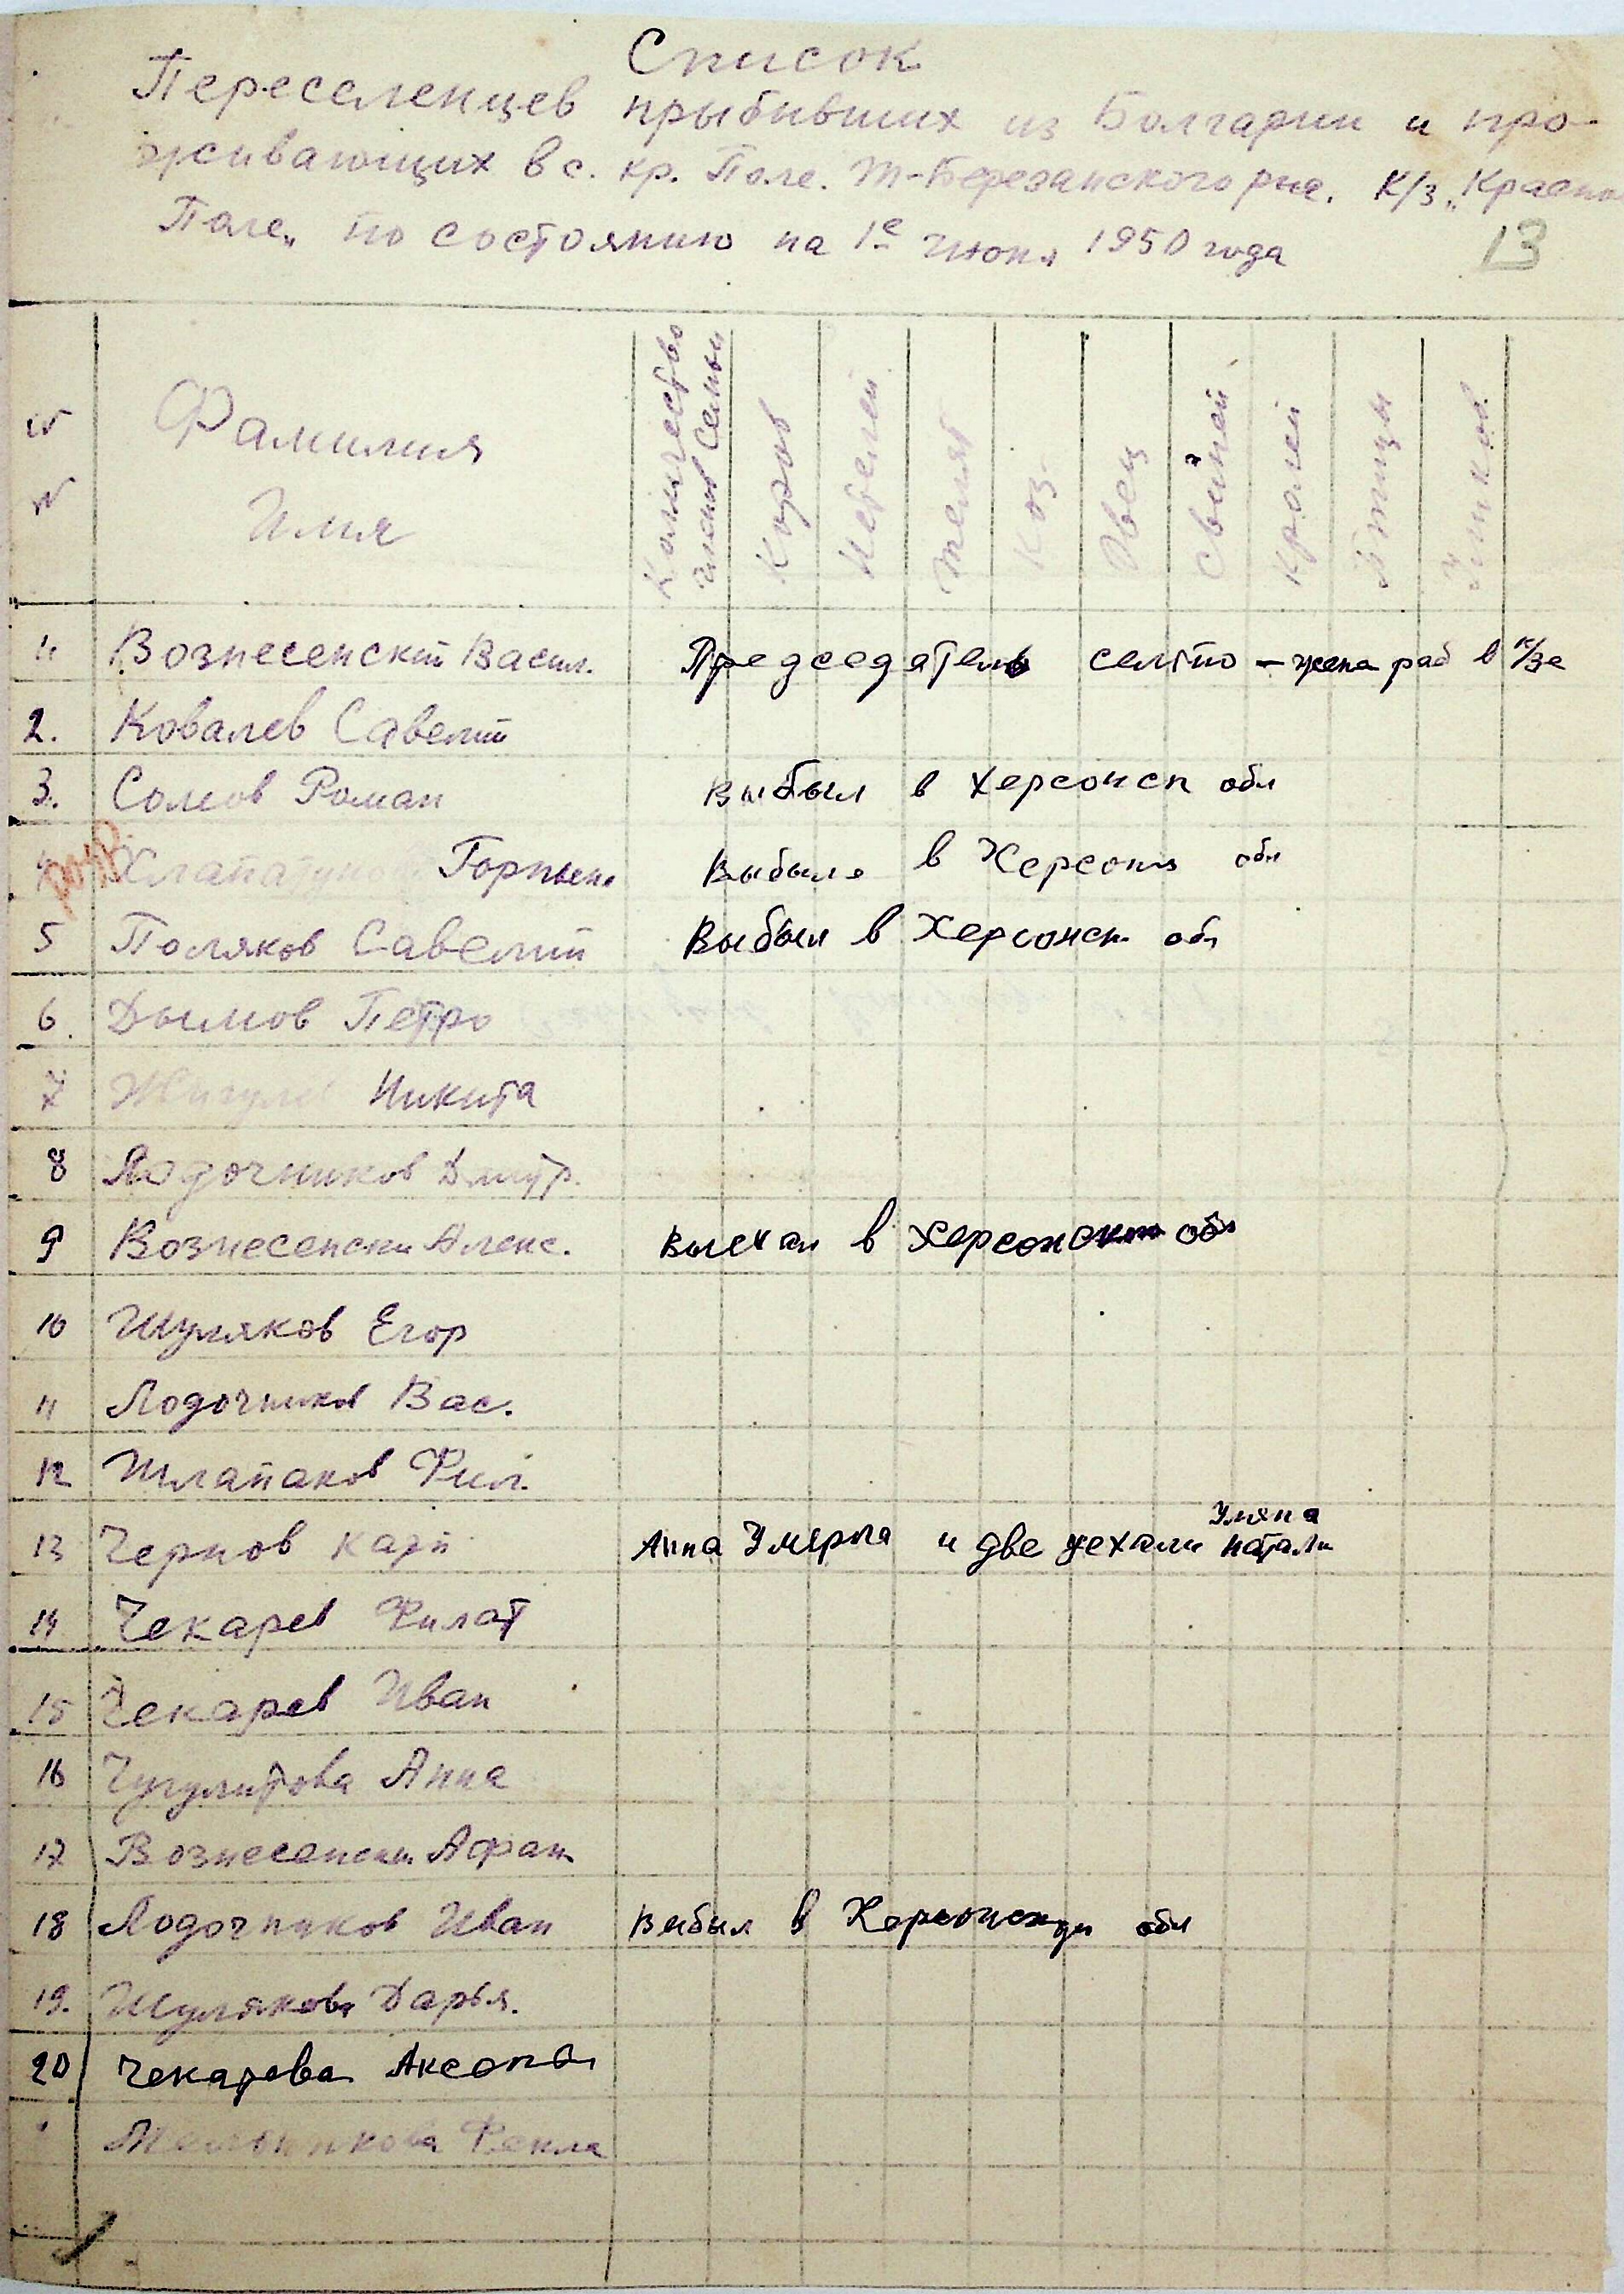 Список
Переселенцев прыбивших из Болгарии и про-
живающих в с. кр. Поле. Т-Березанского р-на. К/з „Красно
Поле„ по состоянию на 1е июня 1950 года
13
N N
Фамилия
Имя
Количество
членов семьи
Коров
Нетелей
Телят
Коз
Овец
Свиней
Кролей
Птицы
1 Вознесенский Васил. Председатель сельпо - жена раб в к/зе
2. Ковалев Савелий
3. Сомов Роман Выбыл в Херсонск обл
Горпына Выбыла в Херсонск обл
5 Поляков Савелий Выбыл в Херсонск обл
6. Дымов Петро
7 Никита
8 Лодочников Дмитр.
9 Вознесенски Алекс. Выехал в Херсонскую обл
10 Шуляков Егор
11 Лодочников Вас.
12 Шлапаков Фил.
Уляна
13 Чернов Анна Умерла и две уехали Натали
14 Чекарев Филат
15 Чекарев Иван
16 Анна
17 Вознесенски Афан
18 Лодочников Иван Выбыл в Херсонскую обл
19. Шулякова Дарья.
20 Чекарева Аксения
Мельникова Фекла